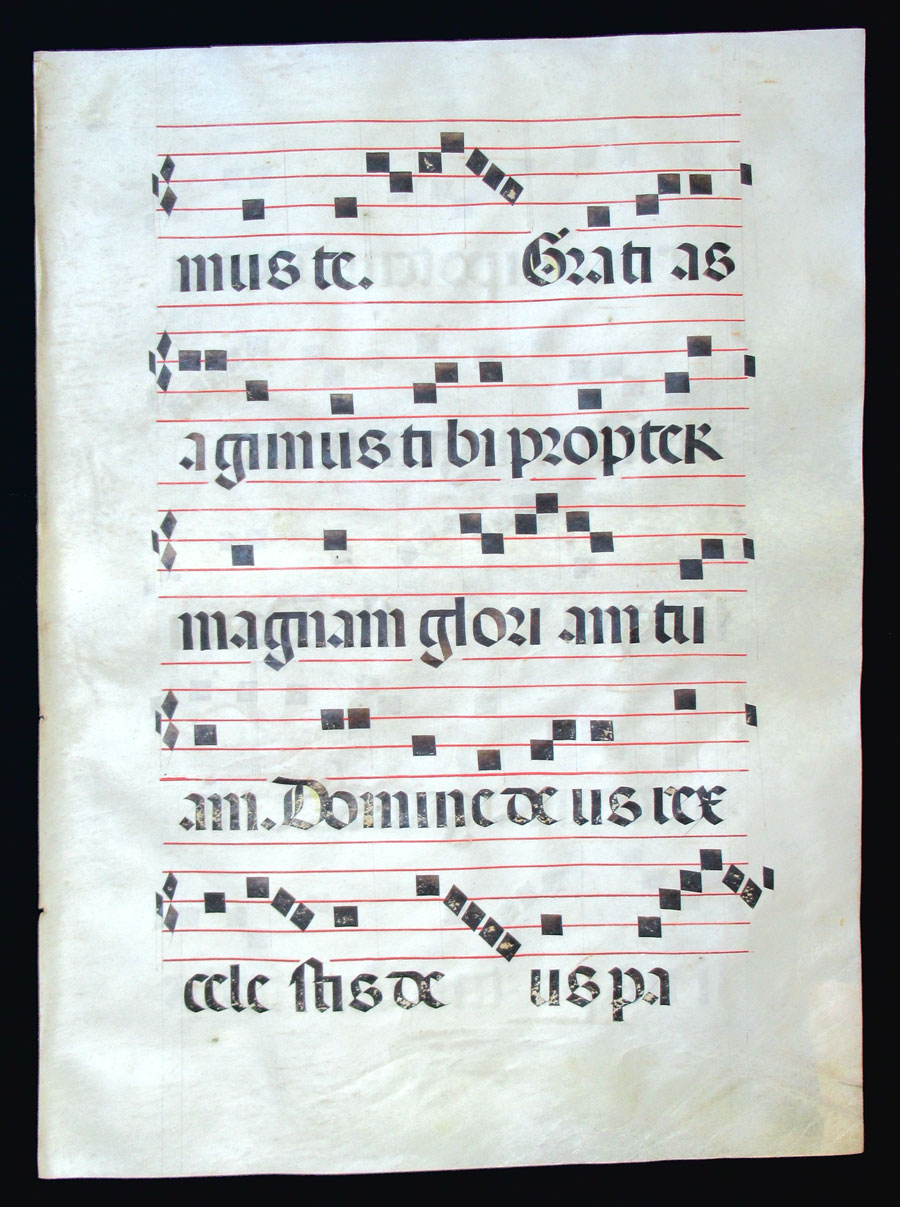 mus te. Grati as
agimus ti bi propter
magnam glori am tu
am. Domine de us rex
cele stis de us pa